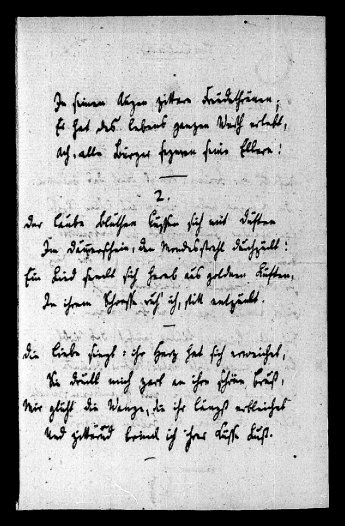 In seinen Augen zittern Freudethränen,
Er hat des Lebens ganzen Werth erlebt,
Ach, alle Bürger segnen seine
2.
Der Laube Blüthen küssen sich mit Düften
Im Dämmerschein, den Mondeslicht durchzückt:
Ein Lied senkt sich herab aus goldnen Lüften,
In ihrem Schooße ruh' ich, still entzückt.
Die Liebe siegt: ihr Herz hat sich erweichet,
Sie drückt mich zart an ihre schöne Brust,
Mir glüht die Wange, die ihr längst erbleichet
Und zitternd trink ich ihrer Küsse Lust.